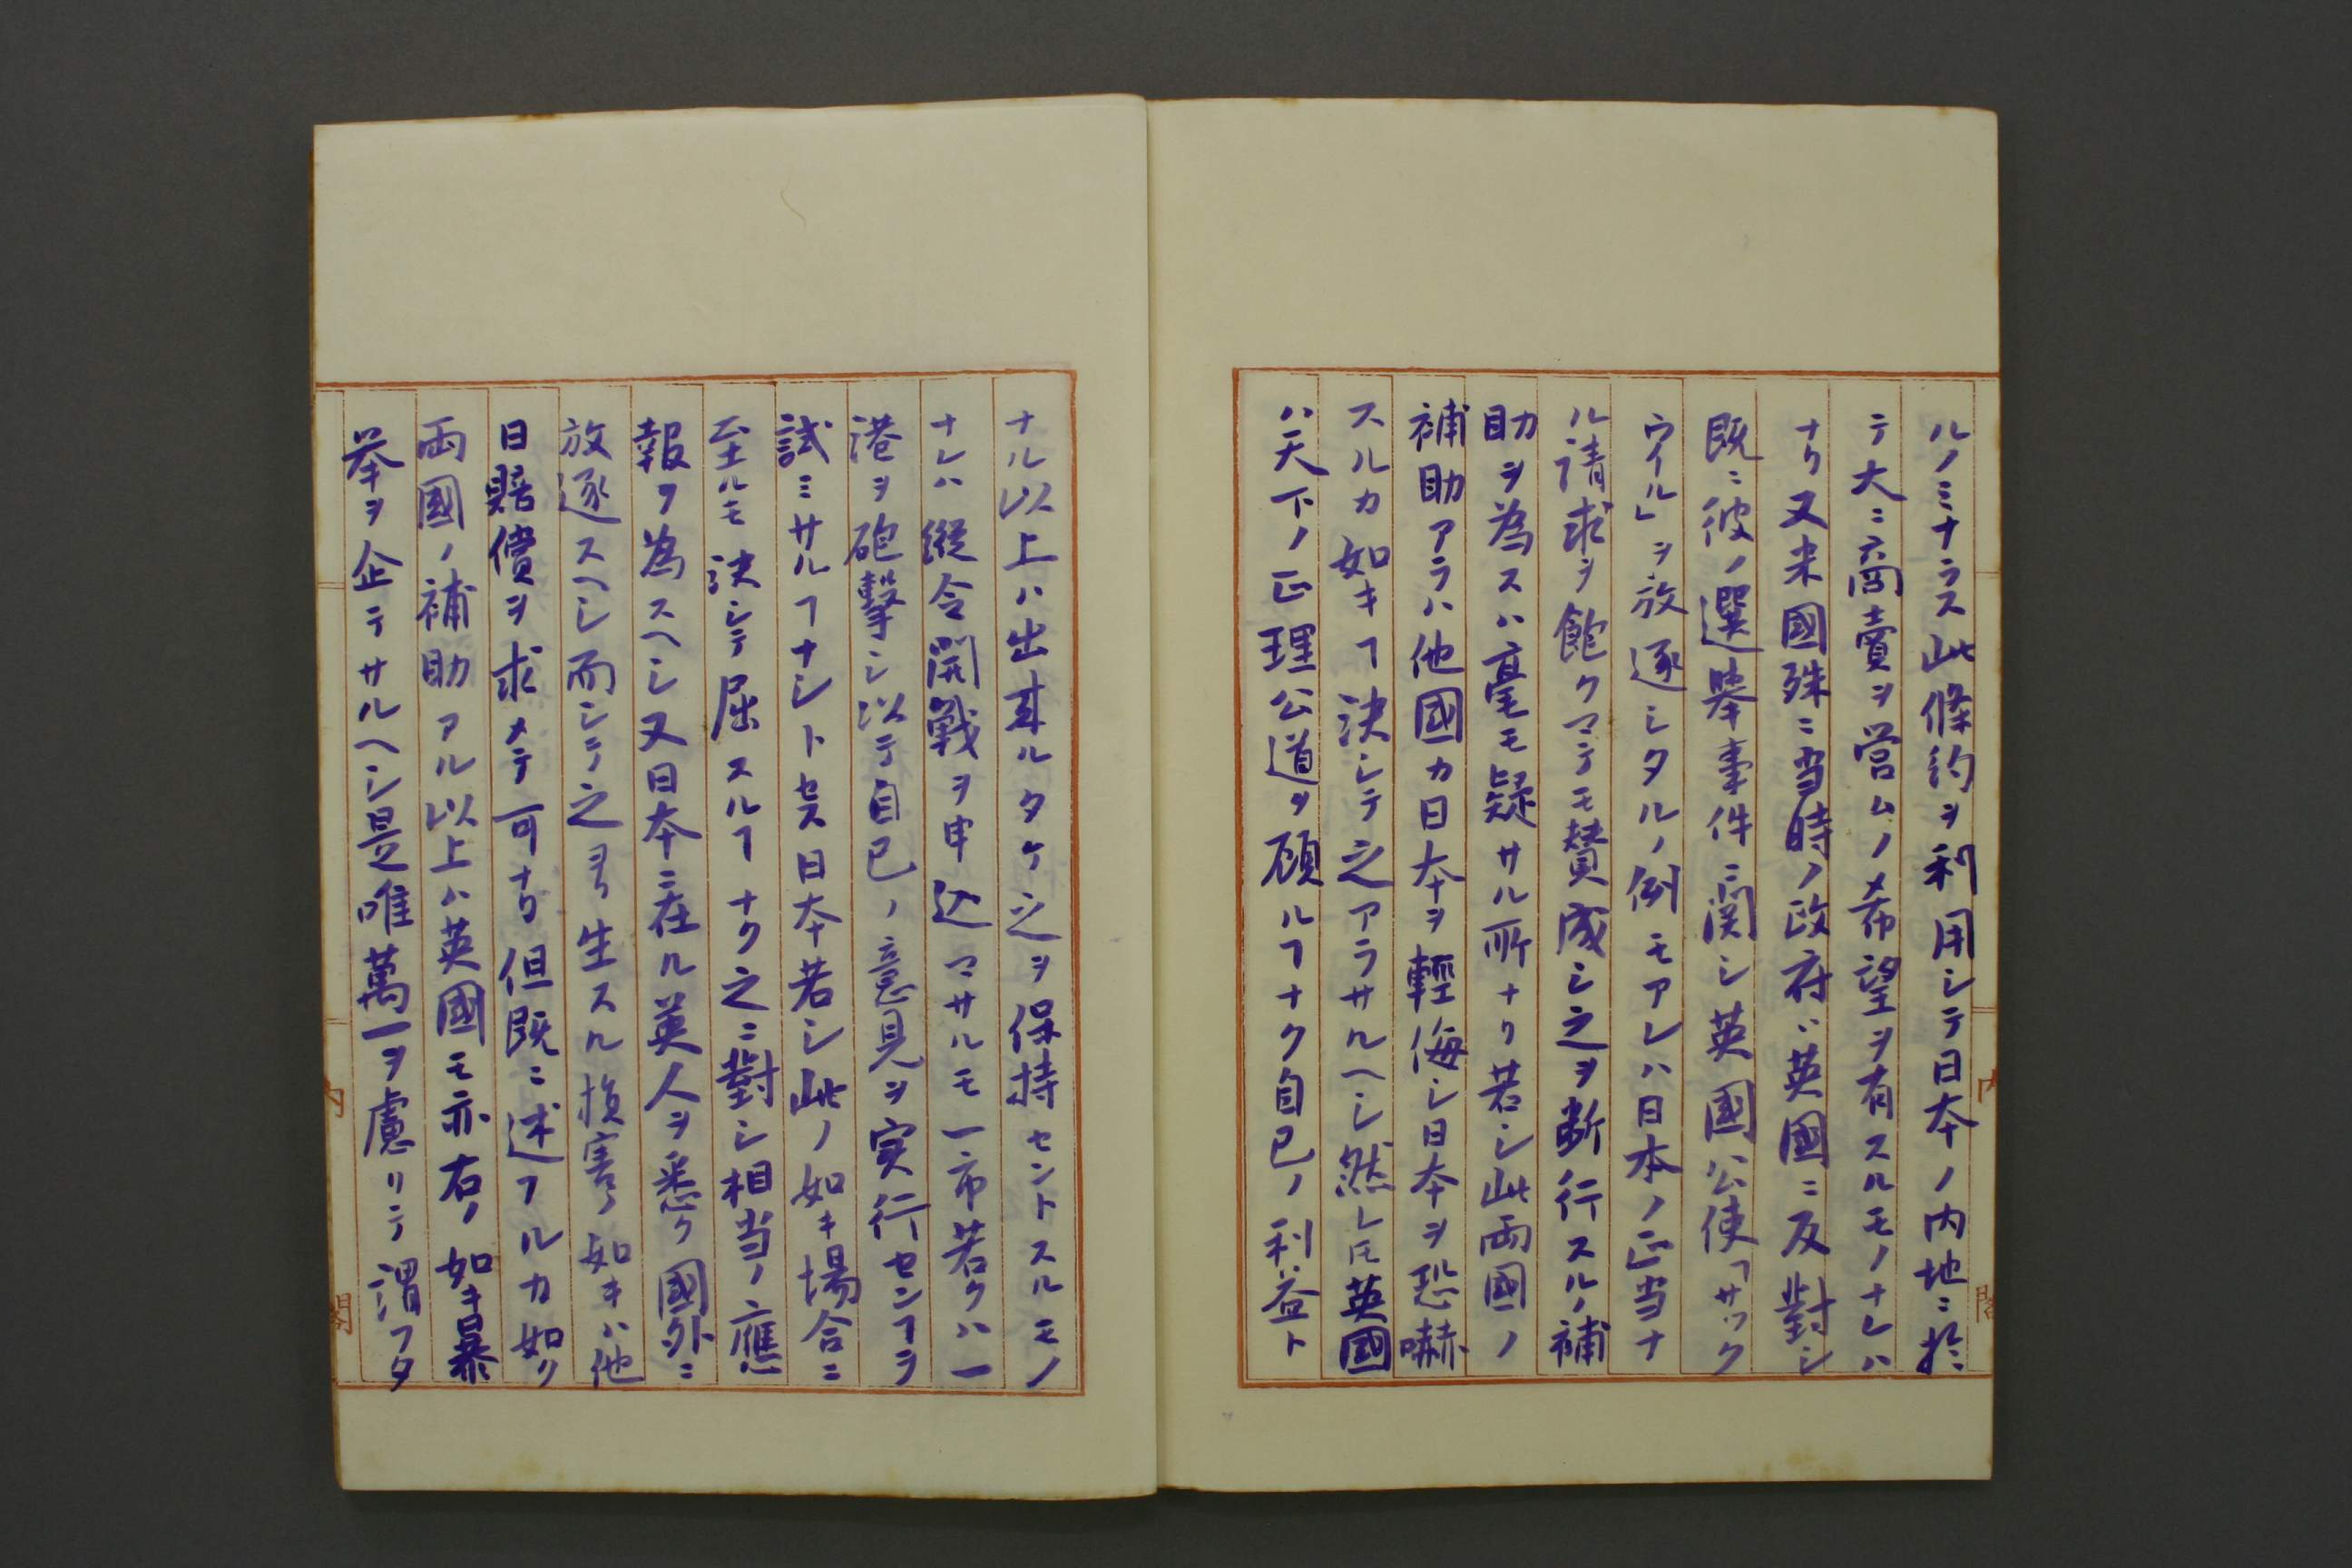 ルノミナラス此條約ヲ利用シテ日本ノ内地ニ於
テ大ニ商賣ヲ営ムノ希望ヲ有スルモノナレハ
ナリ又米國殊ニ当時ノ政府ハ英國ニ反對シ
既ニ彼ノ選擧事件ニ関シ英國公使「サック
ウイル」ヲ放逐シタルノ例モアレハ日本ノ正当ナ
ル請求ヲ飽クマテモ賛成シ之ヲ断行スルノ補
助ヲ為スハ毫モ疑サル所ナリ若シ此両國ノ
補助アラハ他國カ日本ヲ輕侮シ日本ヲ恐嚇
スルカ如キヿ決シテ之アラサルヘシ然レ𪜈英國
ハ天下ノ正理公道ヲ顧ルヿナク自己ノ利益ト
内
閣
ナル以上ハ出来ルタケ之ヲ保持セントスルモノ
ナレハ縦令開戦ヲ申込マサルモ一市若クハ一
港ヲ砲撃シ以テ自己ノ意見ヲ実行センヿヲ
試ミサルヿナシトセス日本若シ此ノ如キ場合ニ
至ルモ決シテ屈スルヿナク之ニ對シ相当ノ應
報ヲ為スヘシ又日本ニ在ル英人ヲ悉ク國外ニ
放逐スヘシ而シテ之ヨリ生スル損害ノ如キハ他
日賠償ヲ求メテ可ナリ但既ニ述フルカ如ク
両國ノ補助アル以上ハ英國モ亦右ノ如キ暴
挙ヲ企テサルヘシ是唯萬一ヲ慮リテ謂フタ
内
閣